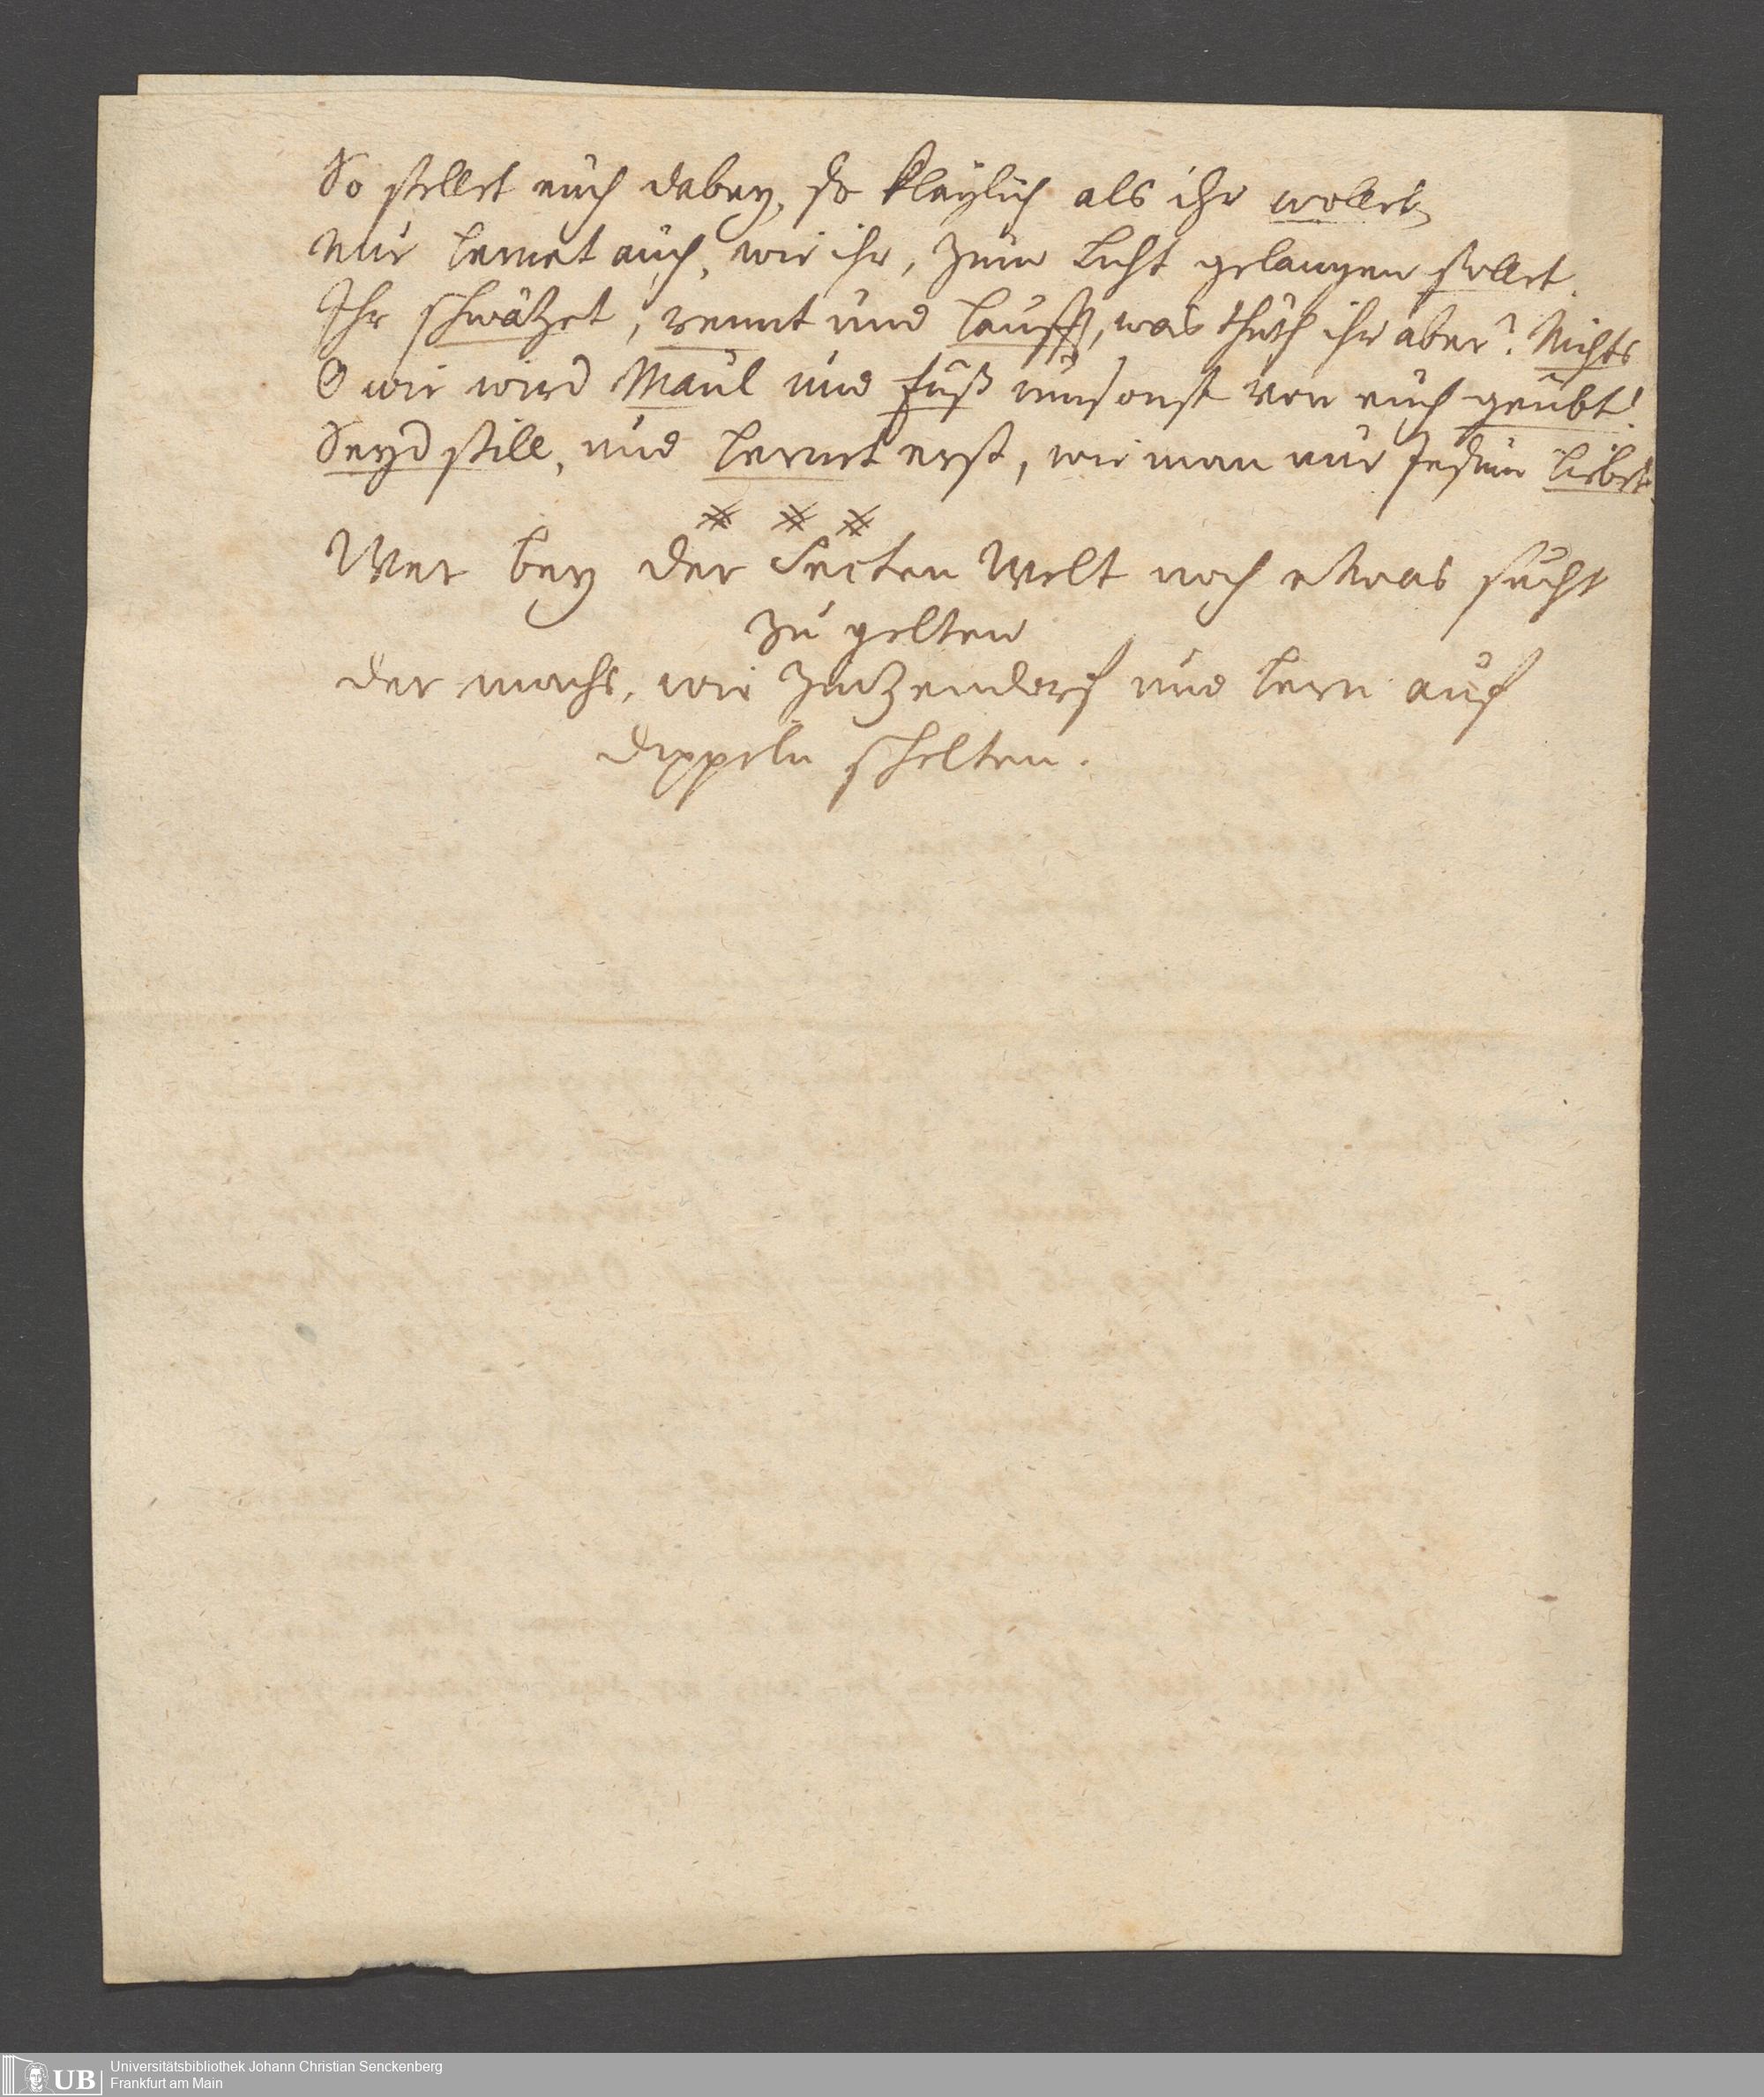 So stellet euch dabey, so kläglich als ihr wollet,
Nur lernet auch, wie ihr, zum Licht gelangen sollet.
Ihr schwätzet, rennt und laufft, was thuth ihr aber? Nichts
O wie wird Maul und Fuß umsonst von euch geübt!
Seyd still, und lernet erst, wie man nur Jesum liebet.
* * *
Wer bey der Secten Welt noch etwas sucht
zu gelten
der machs, wie Zinzendorf und lern auf
Dippeln schelten.
UB
Universitätsbibliothek Johann Christian Senckenberg
Frankfurt am Main